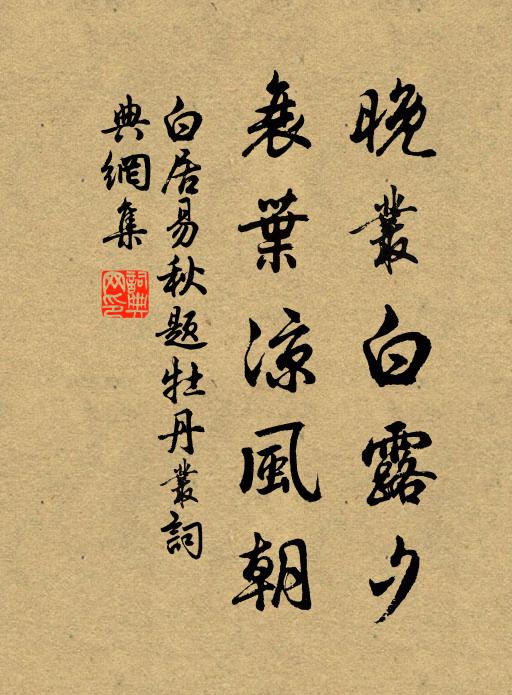 晚叢白露夕
衰葉涼風朝
白居易秋題牡丹叢詞
典網集
詞典網印